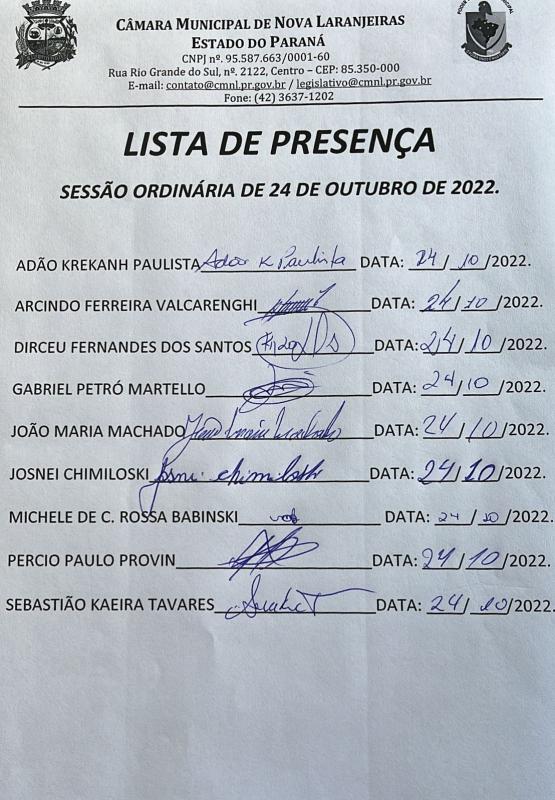 CÂMARA MUNICIPAL DE NOVA LARANJEIRAS
ESTADO DO PARANÁ
CNPJ nº. 95.587.663/0001-60
Rua Rio Grande do Sul, nº. 2122, Centro – CEP: 85.350-000
E-mail: contato@cmnl.pr.gov.br / legislativo@cmnl.pr.gov.br
Fone: (42) 3637-1202
LISTA DE PRESENÇA
SESSÃO ORDINÁRIA DE 24 DE OUTUBRO DE 2022.
ADÃO KREKANH PAULISTA Adão K Paulista DATA: 24/10/2022.
ARCINDO FERREIRA VALCARENGHI DATA: 24/10/2022.
DIRCEU FERNANDES DOS SANTOS DATA: 24/10/2022.
GABRIEL PETRÓ MARTELLO DATA: 24/10/2022.
JOÃO MARIA MACHADO João Maria Machado DATA: 24/10/2022.
JOSNEI CHIMILOSKI Josnei chimiloski DATA: 24/10/2022.
MICHELE DE C. ROSSA BABINSKI DATA: 24/10/2022.
PERCIO PAULO PROVIN DATA: 24/10/2022.
SEBASTIÃO KAEIRA TAVARES DATA: 24/10/2022.